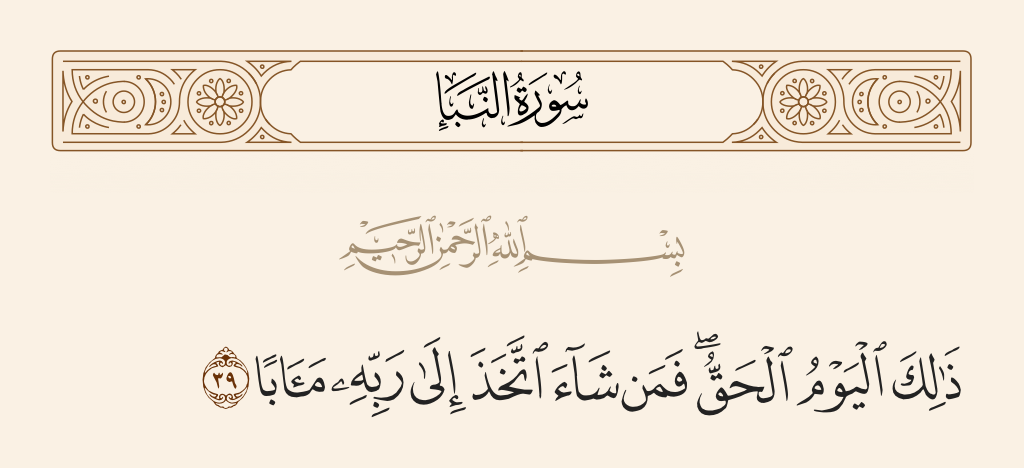 سُورَةُ النَّبَإِ
بِسْمِ ٱللَّهِ ٱلرَّحْمَٰنِ ٱلرَّحِيمِ
ذَٰلِكَ ٱلْيَوْمُ ٱلْحَقُّ ۖ فَمَن شَآءَ ٱتَّخَذَ إِلَىٰ رَبِّهِۦ مَـَٔابًا ٣٩